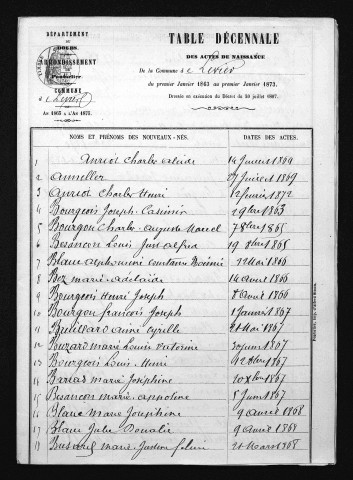 DÉPARTEMENT
du DOUBS
ARRONDISSEMENT
de Pontarlier
COMMUNE
de Levier
AN 1863 à l'AN 1873.
TABLE DÉCENNALE
DES ACTES DE NAISSANCE
De la Commune de Levier
du premier Janvier 1863 au premier Janvier 1873.
Dressée en exécution du Décret du 20 juillet 1807.
NOMS ET PRÉNOMS DES NOUVEAUX-NÉS. DATES DES ACTES.
1 Anriot Charles 14 Janvier 1869
2 Anneller 27 Juillet 1869
3 Anriot Charles Henri 12 février 1872
4 Bourgeois Joseph Casimir 1863
5 Bourgon Charles Auguste Marcel 7 bre 1865
6 Besançon Louis 19 bre 1865
7 Blanc Alphonsine Constance Noémie 22 Mai 1866
8 Boz marie adélaïde 14 avril 1866
9 Bourgeois Henri Joseph 8 avril 1866
10 Bourgon françois Joseph 1 Janvier 1867
11 Bulliard aimé Cyrille 21 Mai 1867
12 Buzard marie Louise Victorine 30 juin 1867
13 Bourgeois Louis Henri bre 1867
14 Barras marie Joséphine 20 bre 1867
15 Besançon marie appoline 5 Juin 1867
16 Blanc Marie Joséphine 9 avril 1868
17 Blanc Julie Rosalie 9 avril 1868
18 marie Justine 21 Mars 1868